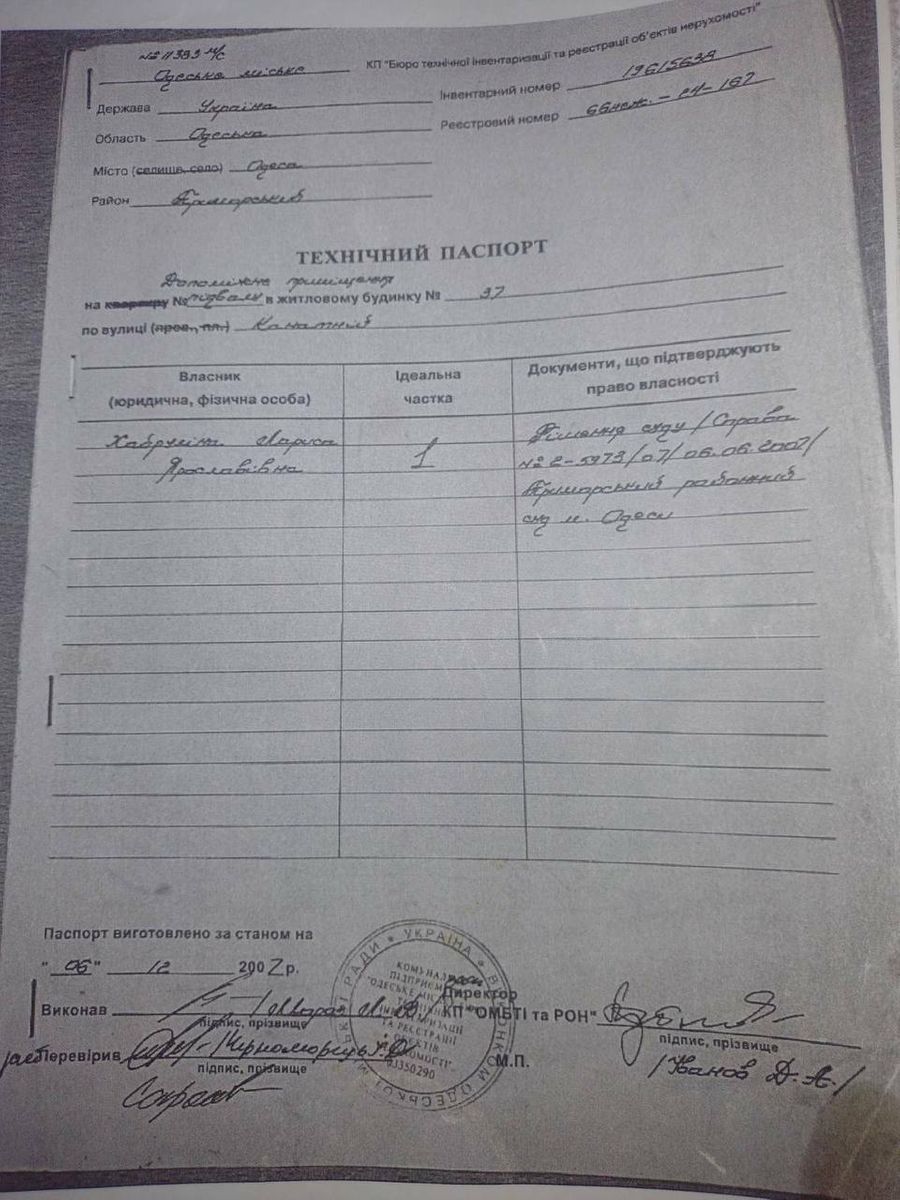 № 11393 м/с
Одеське міське КП "Бюро технічної інвентаризації та реєстрації об'єктів нерухомості"
Держава Україна
Інвентарний номер
Область Одеська
Реєстровий номер
Місто (селище, село) Одеса
Район Приморський
ТЕХНІЧНИЙ ПАСПОРТ
Допоміжне приміщення
на квартиру № підвалу в житловому будинку № 37
по вулиці (пров., пл.) Канатній
Власник
(юридична, фізична особа)
Ідеальна
частка
Документи, що підтверджують
право власності
Лариса
Ярославівна
1
Рішення суду / Справа
№ 2-5973/07/ 06.06.2007/
Приморський районний
суд м. Одеси
Паспорт виготовлено за станом на
" 06 " 12 2007 р.
Виконав
підпис, прізвище
Перевірив
підпис, прізвище
Директор
КП "ОМБТІ та РОН"
підпис, прізвище
М.П.
/Іванов Д. А./
УКРАЇНА
КОМУНАЛЬНЕ
ПІДПРИЄМСТВО
ТА РЕЄСТРАЦІЇ
ОБ'ЄКТІВ
03350290